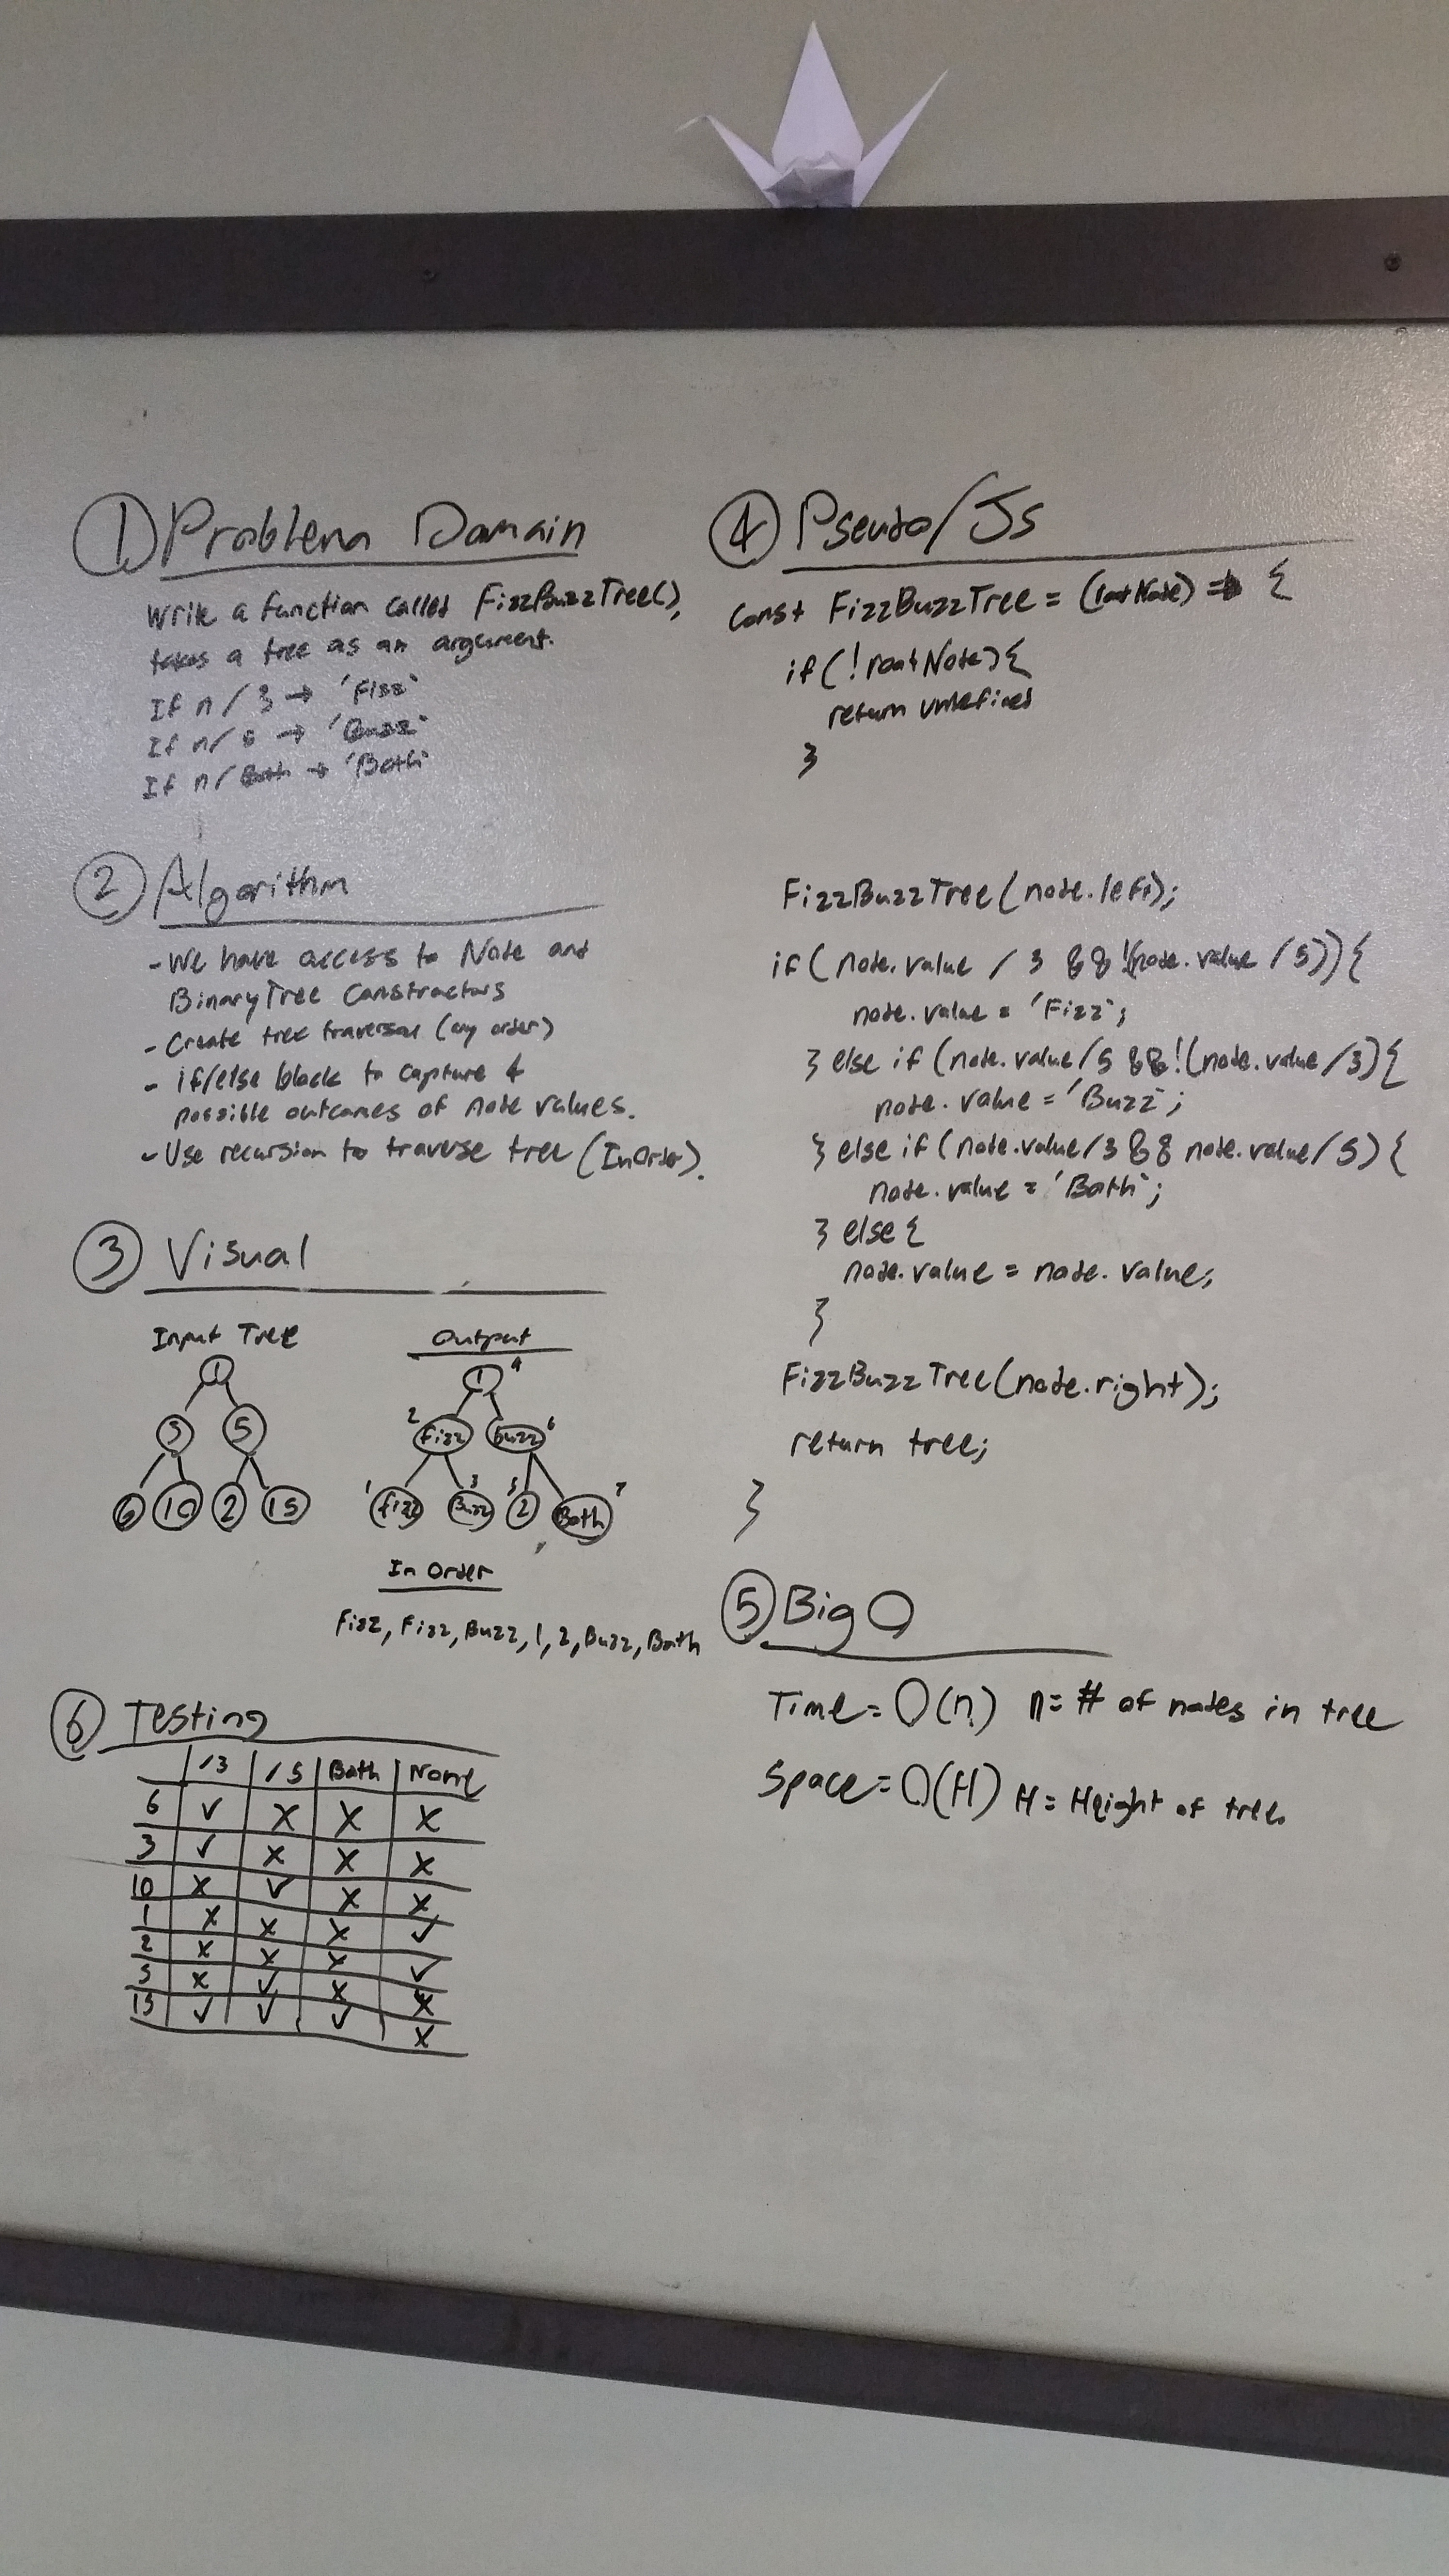 ① Problem Domain
Write a function called FizzBuzzTree(),
takes a tree as an argument.
If n / 3 → 'Fizz'
If n / 5 → 'Buzz'
If n / Both → 'Both'
② Algorithm
- We have access to Node and
BinaryTree Constructors
- Create tree traversal (any order)
- if/else block to capture 4
possible outcomes of node values.
- Use recursion to traverse tree (InOrder).
③ Visual
Input Tree
1
3 5
6 10 2 15
Output
1 4
2 Fizz Buzz 6
1 Fizz 3 Buzz 5 2 Both 7
In Order
Fizz, Fizz, Buzz, 1, 2, Buzz, Both
⑥ Testing
/3 /5 Both None
6 ✓ X X X
3 ✓ X X X
10 X ✓ X X
1 X X X ✓
2 X X X ✓
5 X ✓ X X
15 ✓ ✓ ✓ X
④ Pseudo/Js
const FizzBuzzTree = (rootNode) => {
if (!rootNode){
return undefined
}
FizzBuzzTree(node.left);
if (node.value / 3 && !(node.value / 5)){
node.value = 'Fizz';
} else if (node.value/5 && !(node.value/3){
node.value = 'Buzz';
} else if (node.value/3 && node.value/5) {
node.value = 'Both';
} else {
node.value = node.value;
}
FizzBuzzTree(node.right);
return tree;
}
⑤ Big O
Time = O(n) n = # of nodes in tree
Space = O(H) H = Height of tree.